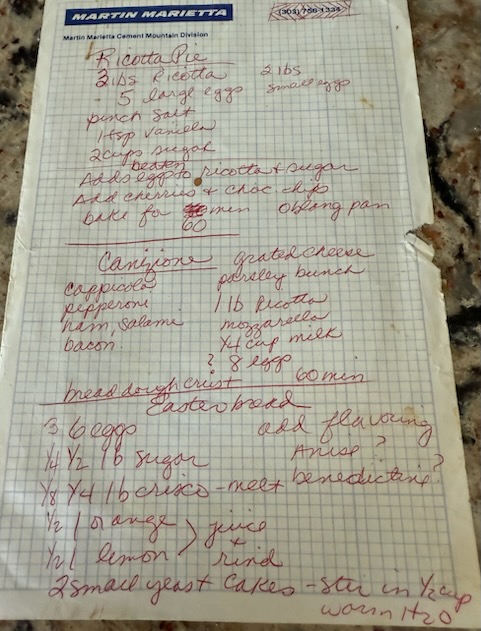 MARTIN MARIETTA
(303) 756-1334
Martin Marietta Cement Mountain Division
Ricotta Pie
2 lbs Ricotta 2 lbs
5 large eggs small eggs
pinch salt
1 tsp vanilla
2 cups sugar
beaten
Adds eggs to ricotta + sugar
Add cherries + choc chips
bake for min oblong pan
60
Canizione grated cheese
cappicola parsley bunch
pepperoni 1 lb Ricotta
ham, salami mozzarella
bacon. 1/4 cup milk
? 8 eggs
bread dough crust 60 min
Easter bread
3 6 eggs add flavouring
1/4 1/2 lb sugar Anise ?
1/8 1/4 lb crisco - melt benedictine?
1/2 1 orange } juice
+
1/2 1 lemon rind
2 small yeast cakes - stir in 1/2 cup
warm H20